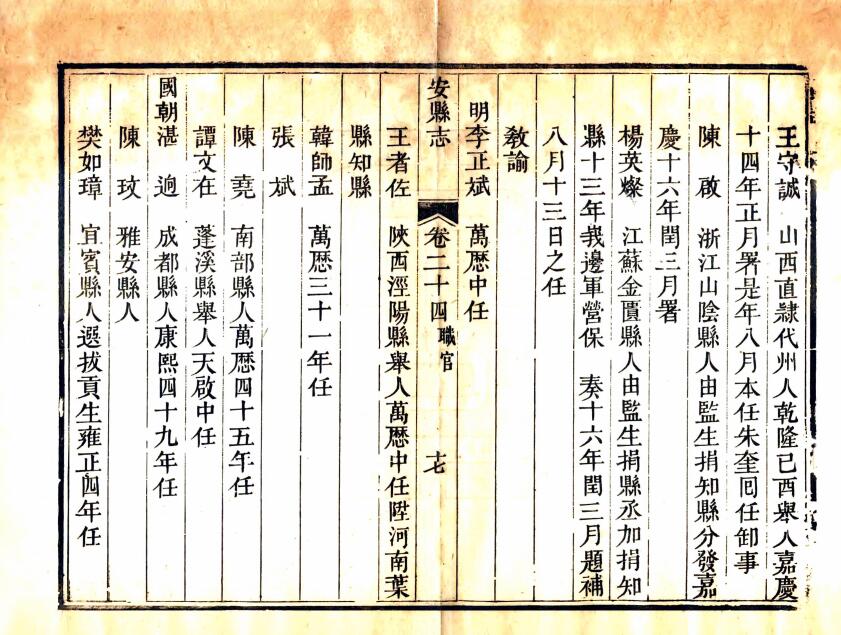 王守誠 山西直隸代州人乾隆己酉舉人嘉慶
十四年正月署是年八月本任朱奎回任卸事
陳啟 浙江山陰縣人由監生捐知縣分發嘉
慶十六年閏三月署
楊英燦 江蘇金匱縣人由監生捐縣丞加捐知
縣十三年我邊軍營保 奏十六年閏三月題補
八月十三日之任
教諭
明李正斌 萬歷中任
安縣志 卷二十四 職官 十七
王者佐 陝西涇陽縣舉人萬歷中任陞河南葉
縣知縣
韓師孟 萬歷三十一年任
張斌
陳堯 南部縣人萬歷四十五年任
譚文在 蓬溪縣舉人天啟中任
國朝湛迥 成都縣人康熙四十九年任
陳玟 雅安縣人
樊如璋 宜賓縣人選拔貢生雍正四年任